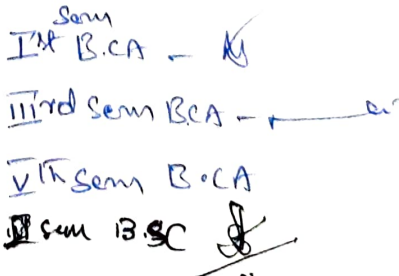 Ist Sem B.CA -
IIIrd Sem BCA -
Vth Sem B.CA
sem B.SC